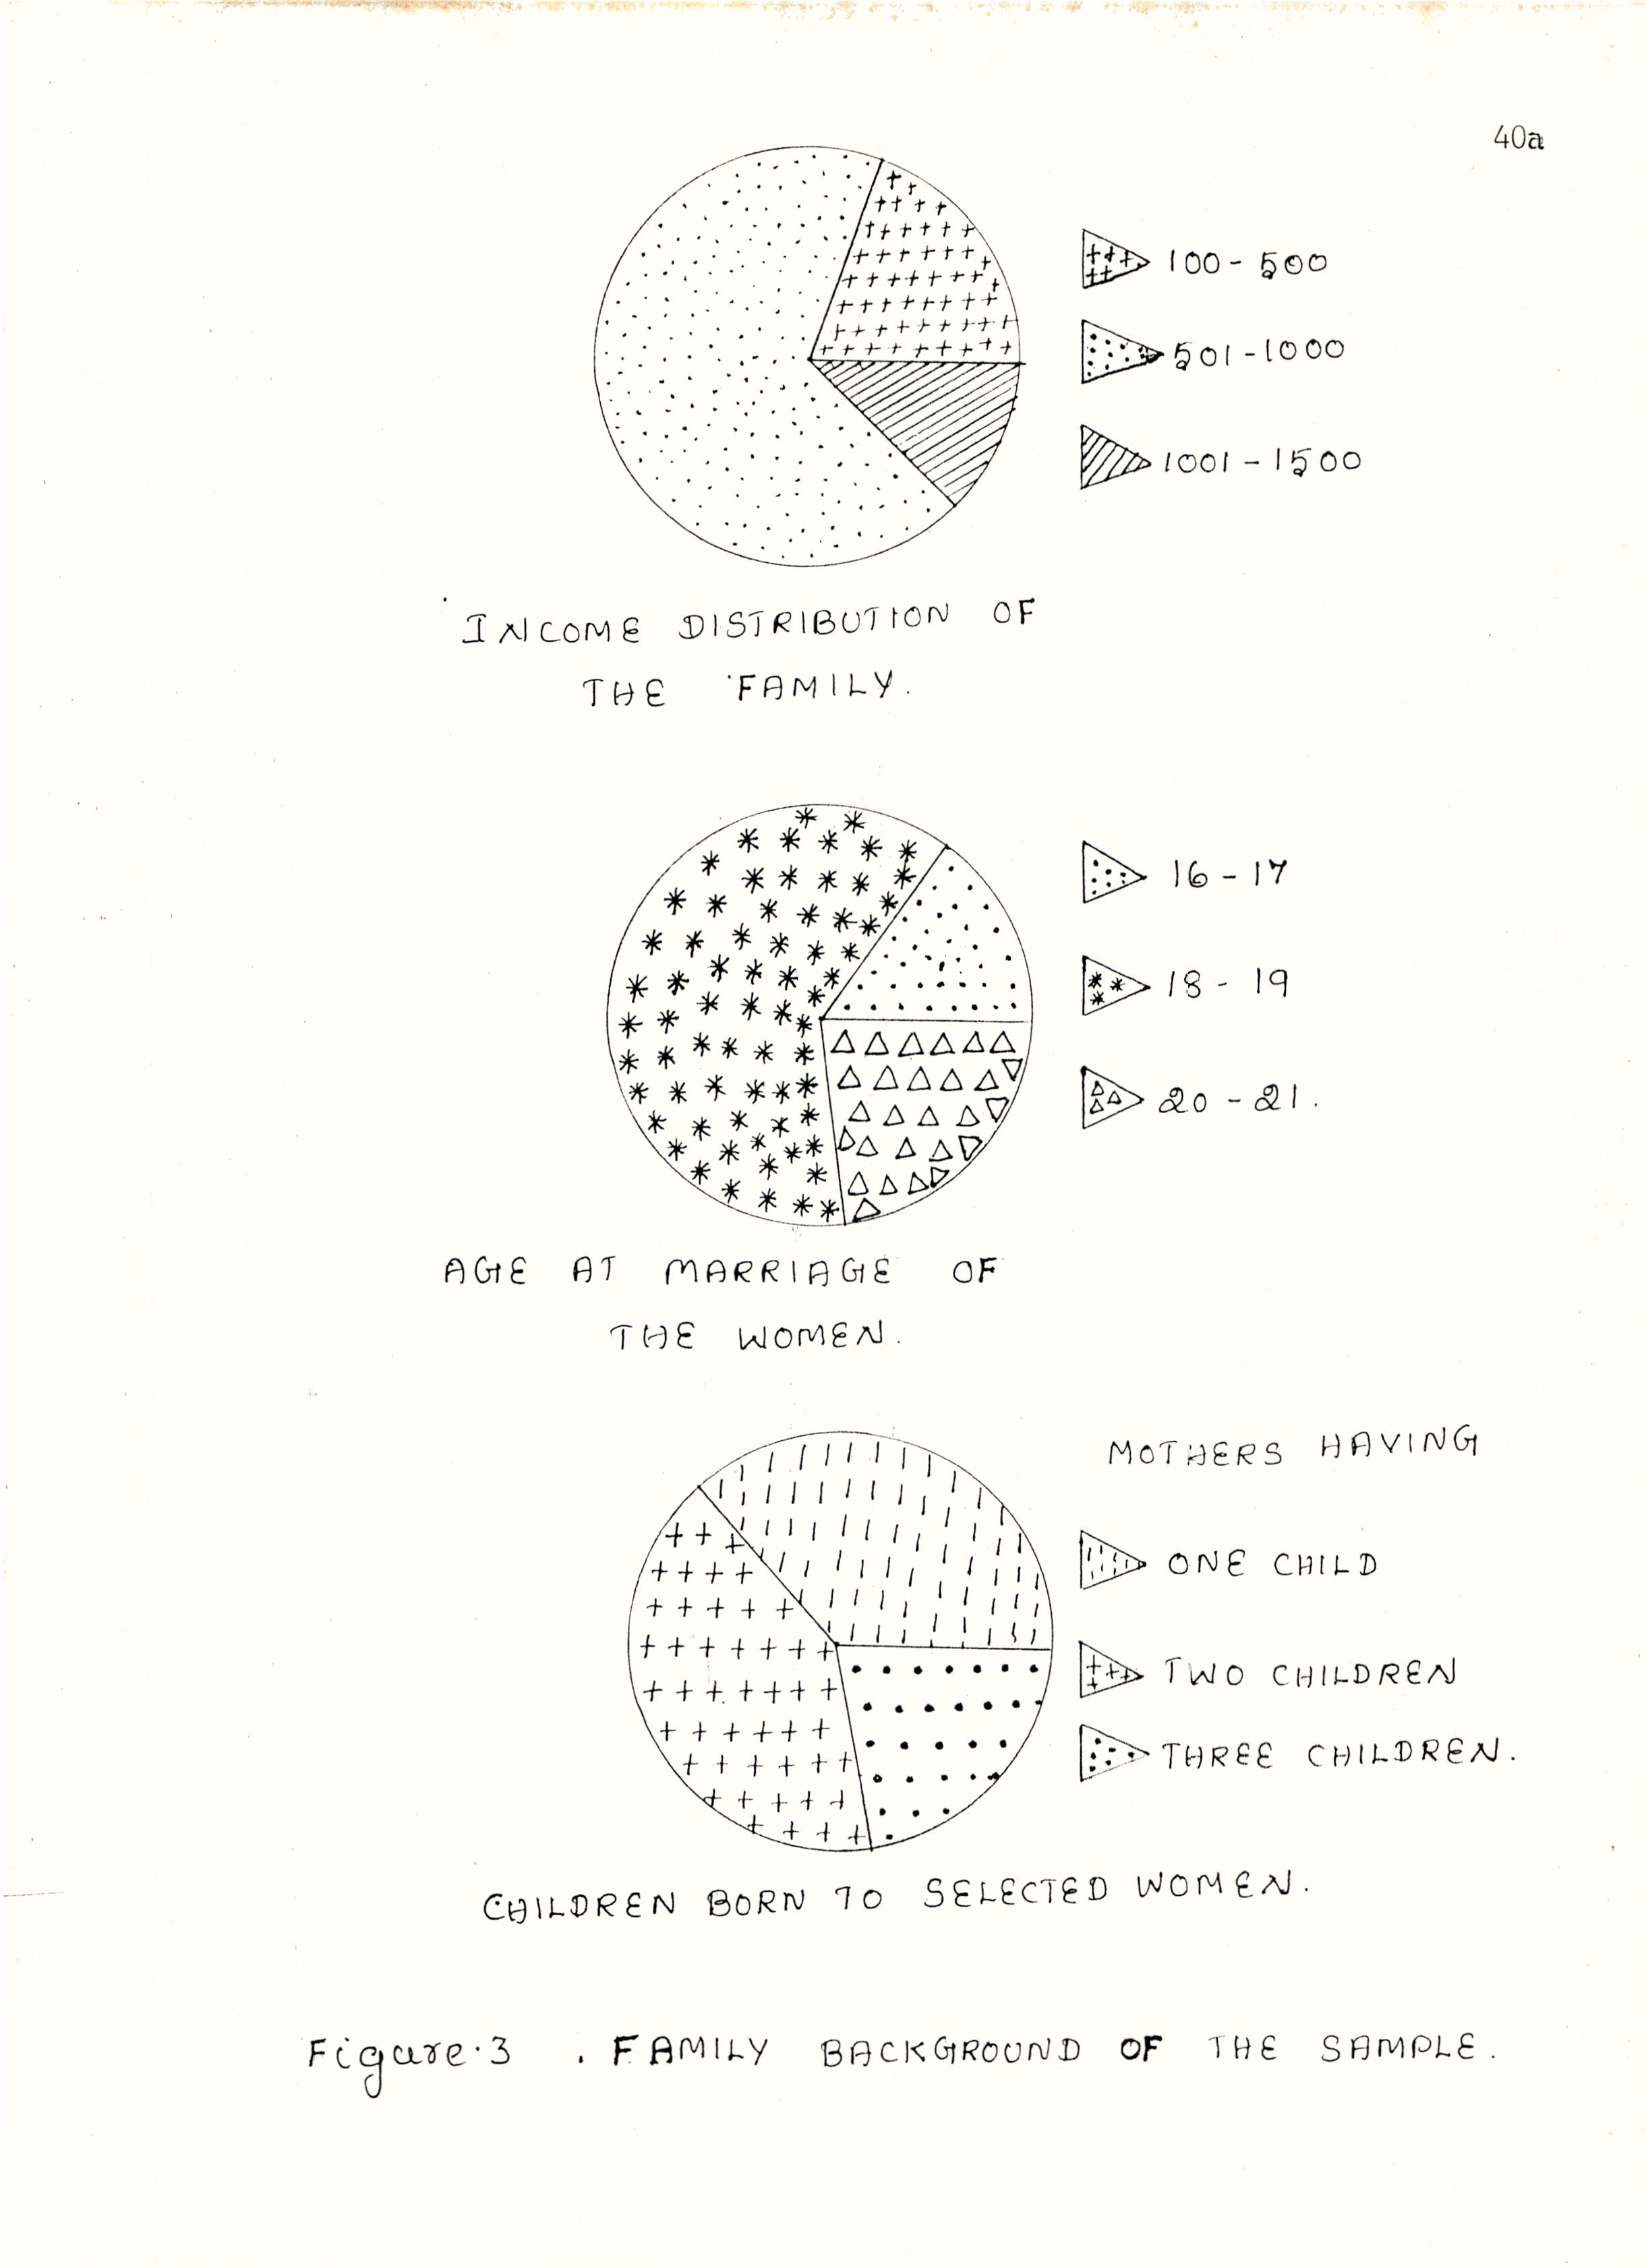 40a
100 - 500
501 - 1000
1001 - 1500
INCOME DISTRIBUTION OF
THE FAMILY.
16 - 17
18 - 19
20 - 21.
AGE AT MARRIAGE OF
THE WOMEN.
MOTHERS HAVING
ONE CHILD
TWO CHILDREN
THREE CHILDREN.
CHILDREN BORN TO SELECTED WOMEN.
Figure.3 . FAMILY BACKGROUND OF THE SAMPLE.